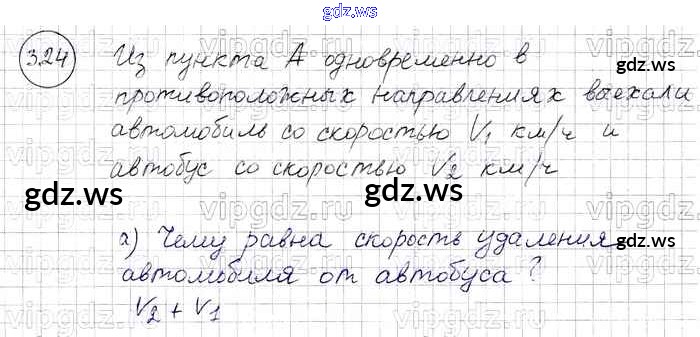 gdz.ws
324 Из пункта А одновременно в
противоположных направлениях выехали
автомобиль со скоростью V₁ км/ч и
автобус со скоростью V₂ км/ч
gdz.ws
gdz.ws
gdz.ws
а) Чему равна скорость удаления
автомобиля от автобуса?
V₂ + V₁
gdz.ws
gdz.ws
vipgdz.ru